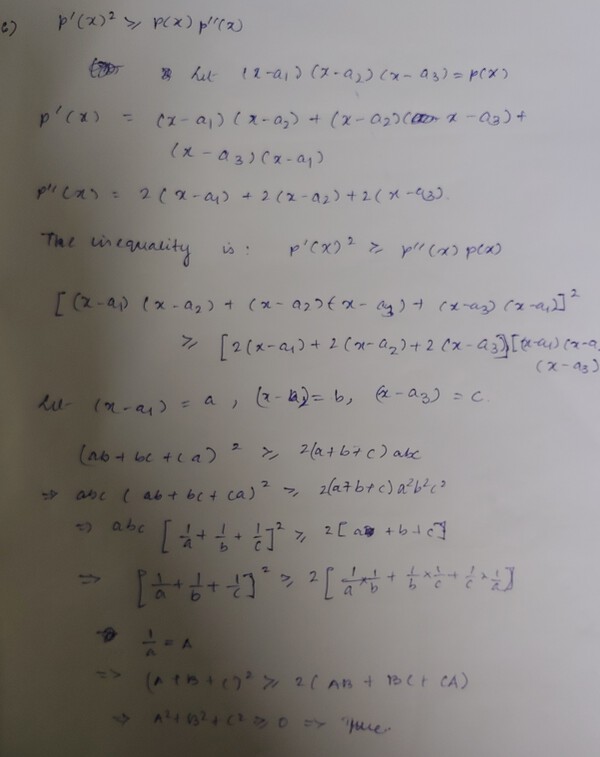 c) p'(x)² ⩾ p(x) p''(x)
Let (x-a₁) (x-a₂) (x-a₃) = p(x)
p'(x) = (x-a₁) (x-a₂) + (x-a₂)(x-a₃) +
(x-a₃)(x-a₁)
p''(x) = 2(x-a₁) + 2(x-a₂) + 2(x-a₃).
The inequality is: p'(x)² ⩾ p''(x) p(x)
[(x-a₁) (x-a₂) + (x-a₂)(x-a₃) + (x-a₃)(x-a₁)]²
⩾ [2(x-a₁) + 2(x-a₂) + 2(x-a₃)] [(x-a₁)(x-a
(x-a₃)
Let (x-a₁) = a, (x-a₂) = b, (x-a₃) = c.
(ab+bc+ca)² ⩾ 2(a+b+c) abc
⇒ abc (ab+bc+ca)² ⩾ 2(a+b+c) a²b²c²
⇒ abc [1/a + 1/b + 1/c]² ⩾ 2[a+b+c]
⇒ [1/a + 1/b + 1/c]² ⩾ 2[1/a × 1/b + 1/b × 1/c + 1/c × 1/a]
1/a = A
⇒ (A+B+C)² ⩾ 2(AB + BC + CA)
⇒ A²+B²+C² ⩾ 0 ⇒ True.